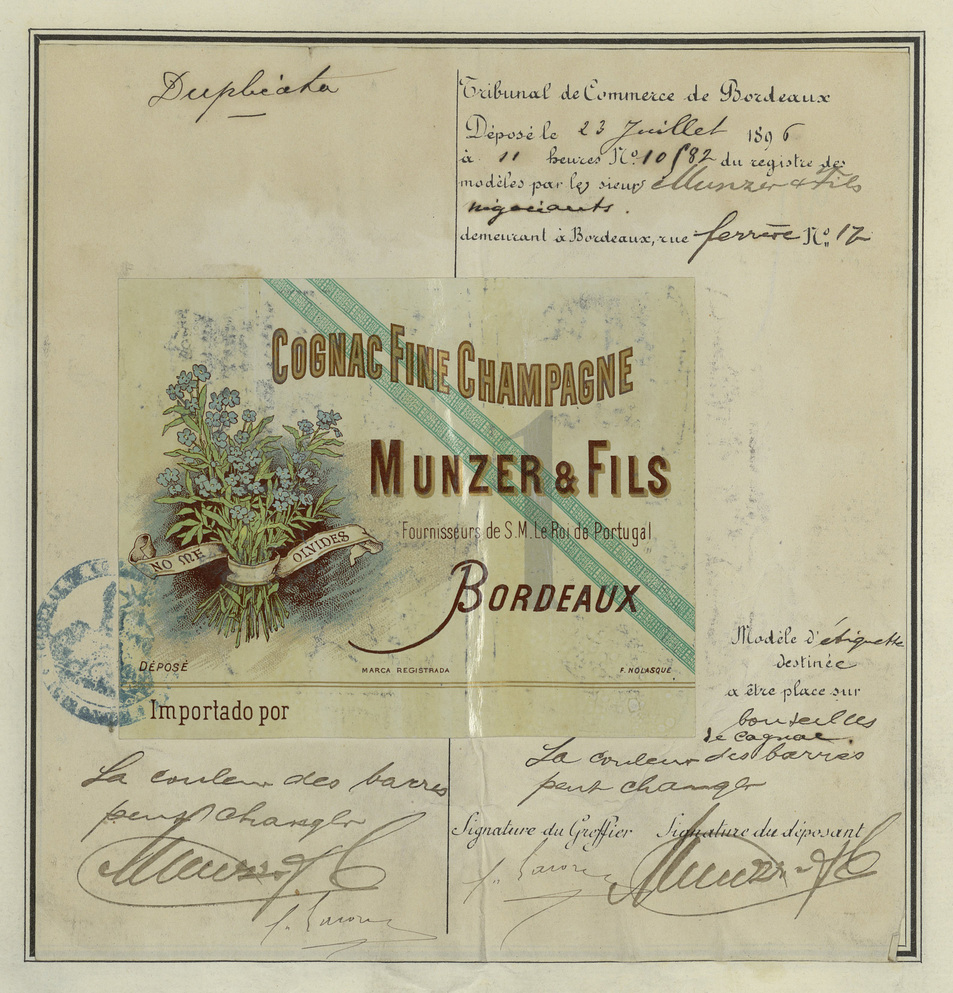 Duplicata
Tribunal de Commerce de Bordeaux
Déposé le 23 Juillet 1896
à 11 heures No. 10582 du registre des
modèles par les sieurs Munzer & Fils
négociants.
demeurant à Bordeaux, rue ferrère No. 12
COGNAC FINE CHAMPAGNE
MUNZER & FILS
Fournisseurs de S.M. Le Roi de Portugal
BORDEAUX
NO ME OLVIDES
DÉPOSÉ
MARCA REGISTRADA
F. NOLASQUE
Importado por
Modèle d'étiquette
destinée
a être place sur
bouteilles
de cognac.
La couleur des barres
peut changer
La couleur des barres
peut changer
Signature du Greffier Signature du déposant
Munzer & F
Munzer & F